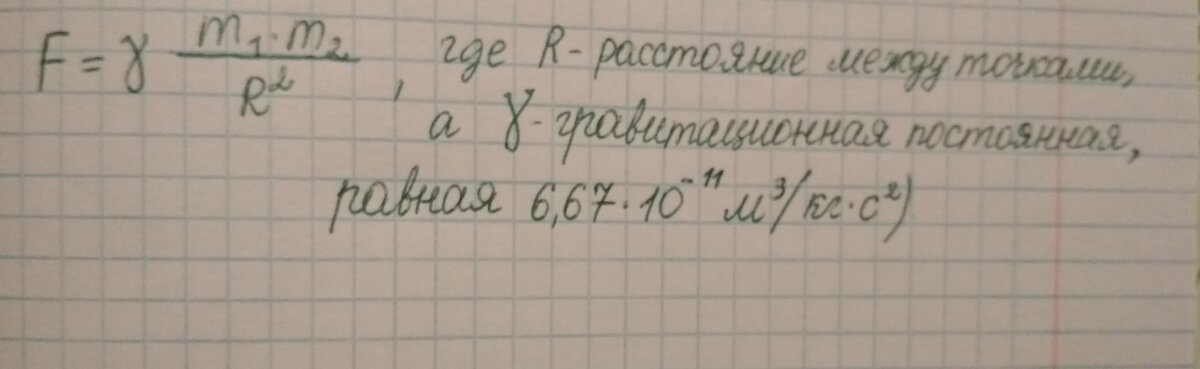 F = γ \frac{m_1 · m_2}{R^2}, где R - расстояние между точками,
а γ - гравитационная постоянная,
равная 6,67 · 10^{-11} м³/кг · с²)